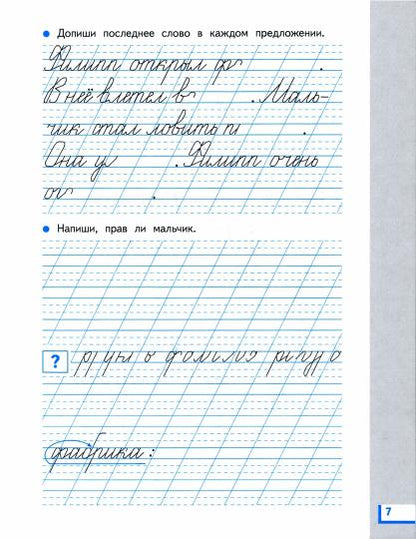 Допиши последнее слово в каждом предложении.
Филипп открыл фо .
В неё влетел в . Маль-
чик стал ловить п .
Она у . Филипп очень
ог .
Напиши, прав ли мальчик.
?
фабрика:
7